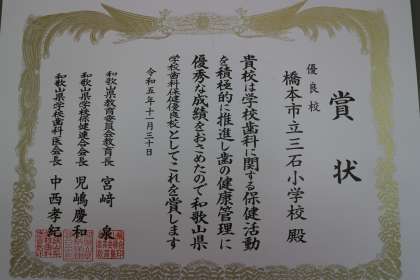 賞状
優良校
橋本市立三石小学校 殿
貴校は学校歯科に関する保健活動
を積極的に推進し歯の健康管理に
優秀な成績をおさめたので和歌山県
学校歯科保健優良校としてこれを賞します
令和五年十一月三十日
和歌山県教育委員会教育長 宮﨑 泉
和歌山県学校保健連合会長 児嶋慶和
和歌山県学校歯科医会長 中西孝紀